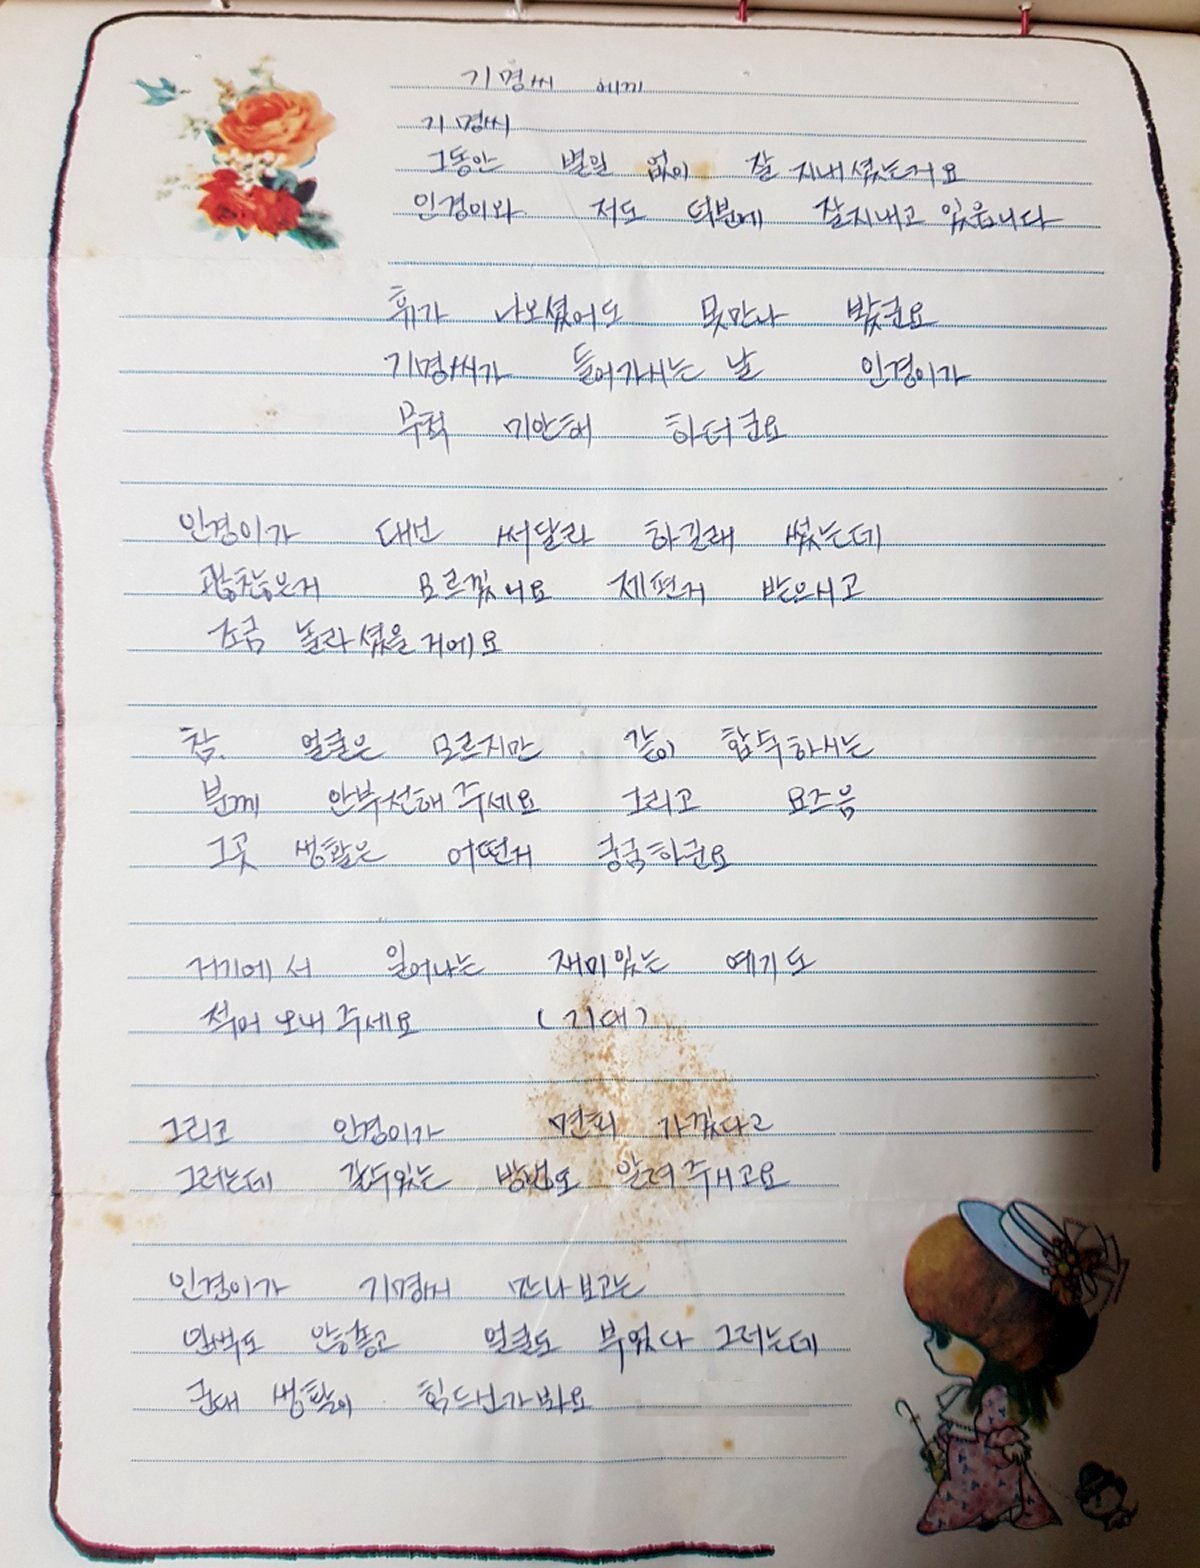 기명씨 에께
기명씨
그동안 별일 없이 잘 지내셨는거요
인경이와 저도 덕분에 잘지내고 있읍니다
휴가 나오셨어도 못만나 봤군요
기명씨가 들어가시는 날 인경이가
무척 미안해 하더군요
인경이가 대신 써달라 하길래 썼는데
괜찮은거 모르겠어요 제편지 받으시고
조금 놀라셨을 거에요
참. 얼굴은 모르지만 같이 합숙하시는
분께 안부전해 주세요 그리고 요즈음
그곳 생활은 어떤지 궁굼하군요
거기에서 일어나는 재미있는 얘기도
적어 보내 주세요 (기대)
그리고 인경이가 면회 가겠다고
그러는데 갈수있는 방법도 알려 주시고요
인경이가 기명씨 만나보고는
안색도 안좋고 얼굴도 부었다 그러는데
군대 생활이 힘드신가봐요